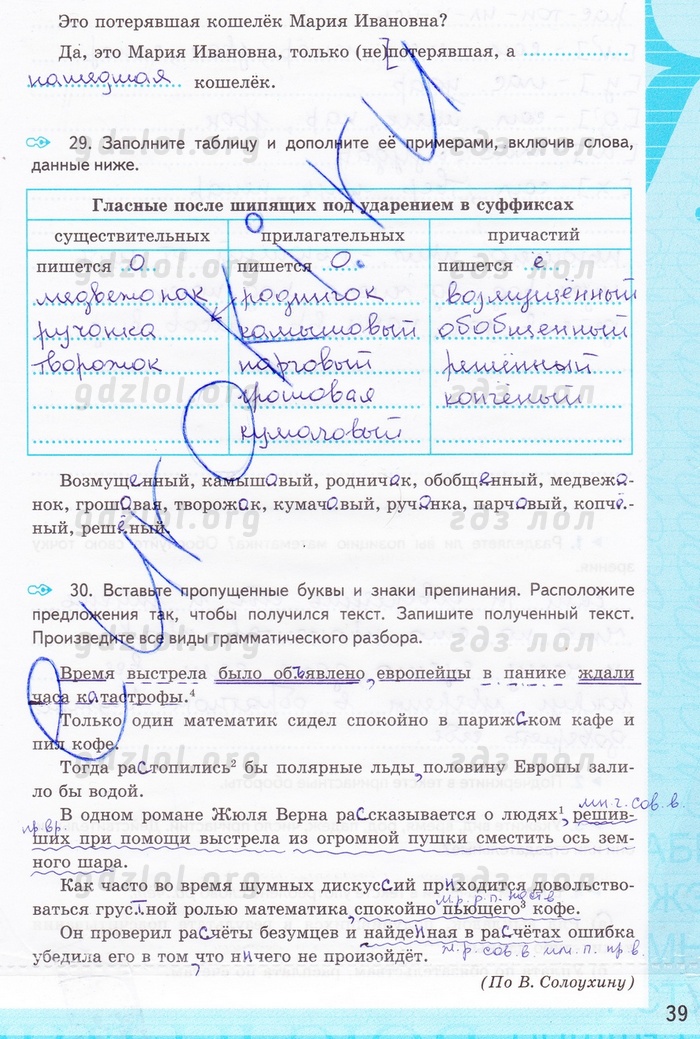 Это потерявшая кошелёк Мария Ивановна?
Да, это Мария Ивановна, только (не)потерявшая, а
нашедшая кошелёк.
29. Заполните таблицу и дополните её примерами, включив слова,
данные ниже.
Гласные после шипящих под ударением в суффиксах
существительных прилагательных причастий
пишется о пишется о пишется ё
медвежонок родничок возмущённый
ручонка камышовый обобщенный
творожок парчовый решённый
грошовая копчёный
кумачовый
Возмущенный, камышовый, родничок, обобщенный, медвежо-
нок, грошовая, творожок, кумачовый, ручонка, парчовый, копчё-
ный, решёный.
30. Вставьте пропущенные буквы и знаки препинания. Расположите
предложения так, чтобы получился текст. Запишите полученный текст.
Произведите все виды грамматического разбора.
Время выстрела было объявлено, европейцы в панике ждали
часа катастрофы.4
Только один математик сидел спокойно в парижском кафе и
пил кофе.
Тогда растопились2 бы полярные льды, половину Европы зали-
ло бы водой.
мн.ч. сов. в.
В одном романе Жюля Верна рассказывается о людях1, решив-
пр.вр.
ших при помощи выстрела из огромной пушки сместить ось зем-
ного шара.
Как часто во время шумных дискуссий приходится довольство-
м.р. р.п. наст.в
ваться грустной ролью математика, спокойно пьющего3 кофе.
Он проверил расчёты безумцев и найденная в расчётах ошибка
м.р. сов.в. им.п. пр в.
убедила его в том, что ничего не произойдёт.
(По В. Солоухину)
39
gdzlol.org гдз лол
gdzlol.org гдз лол
gdzlol.org гдз лол
gdzlol.org гдз лол
gdzlol.org гдз лол
gdzlol.org гдз лол
gdzlol.org гдз лол
gdzlol.org гдз лол